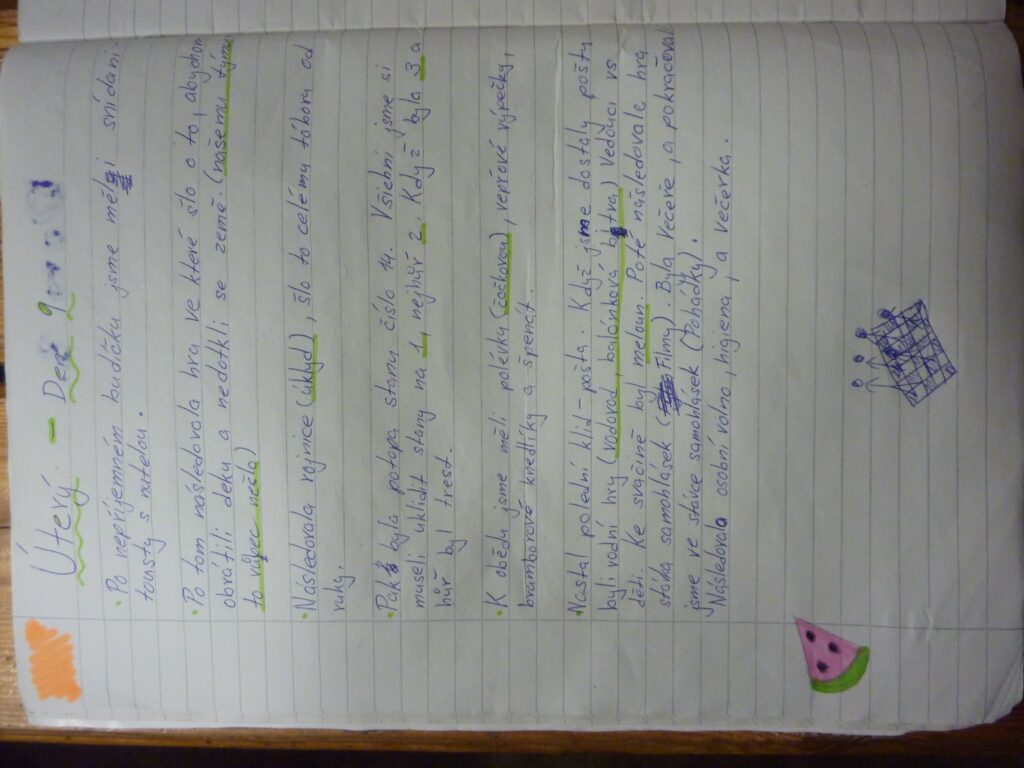 Úterý - Den 9
• Po nepříjemném budíčku jsme měli snídani.
tousty s nutelou.
• Po tom následovala hra ve které šlo o to, abychom
obrátili deku a nedotkli se země. (našemu týmu
to vůbec nešlo)
• Následovala rojnice (úklyd), šlo to celému táboru od
ruky.
• Pak byla potopa stanu číslo 14. Všichni jsme si
museli uklidit stany na 1, nejhůř 2. Když byla 3 a
hůř byl trest.
• K obědy jsme měli polévku (čočkovou), vepřové výpečky,
bramborové knedlíky a špenát.
• Nastal polední klid - pošta. Když jsme dostaly pošty
byli vodní hry (vodovod, balónková bitva) Vedoucí vs
děti. Ke svačině byl meloun. Poté následovale hra
stívka samohlásek (Filmy). Byla večeře, a pokračoval
jsme ve stívce samohlásek (Pohádky).
Následovalo osobní volno, higiena, a večerka.